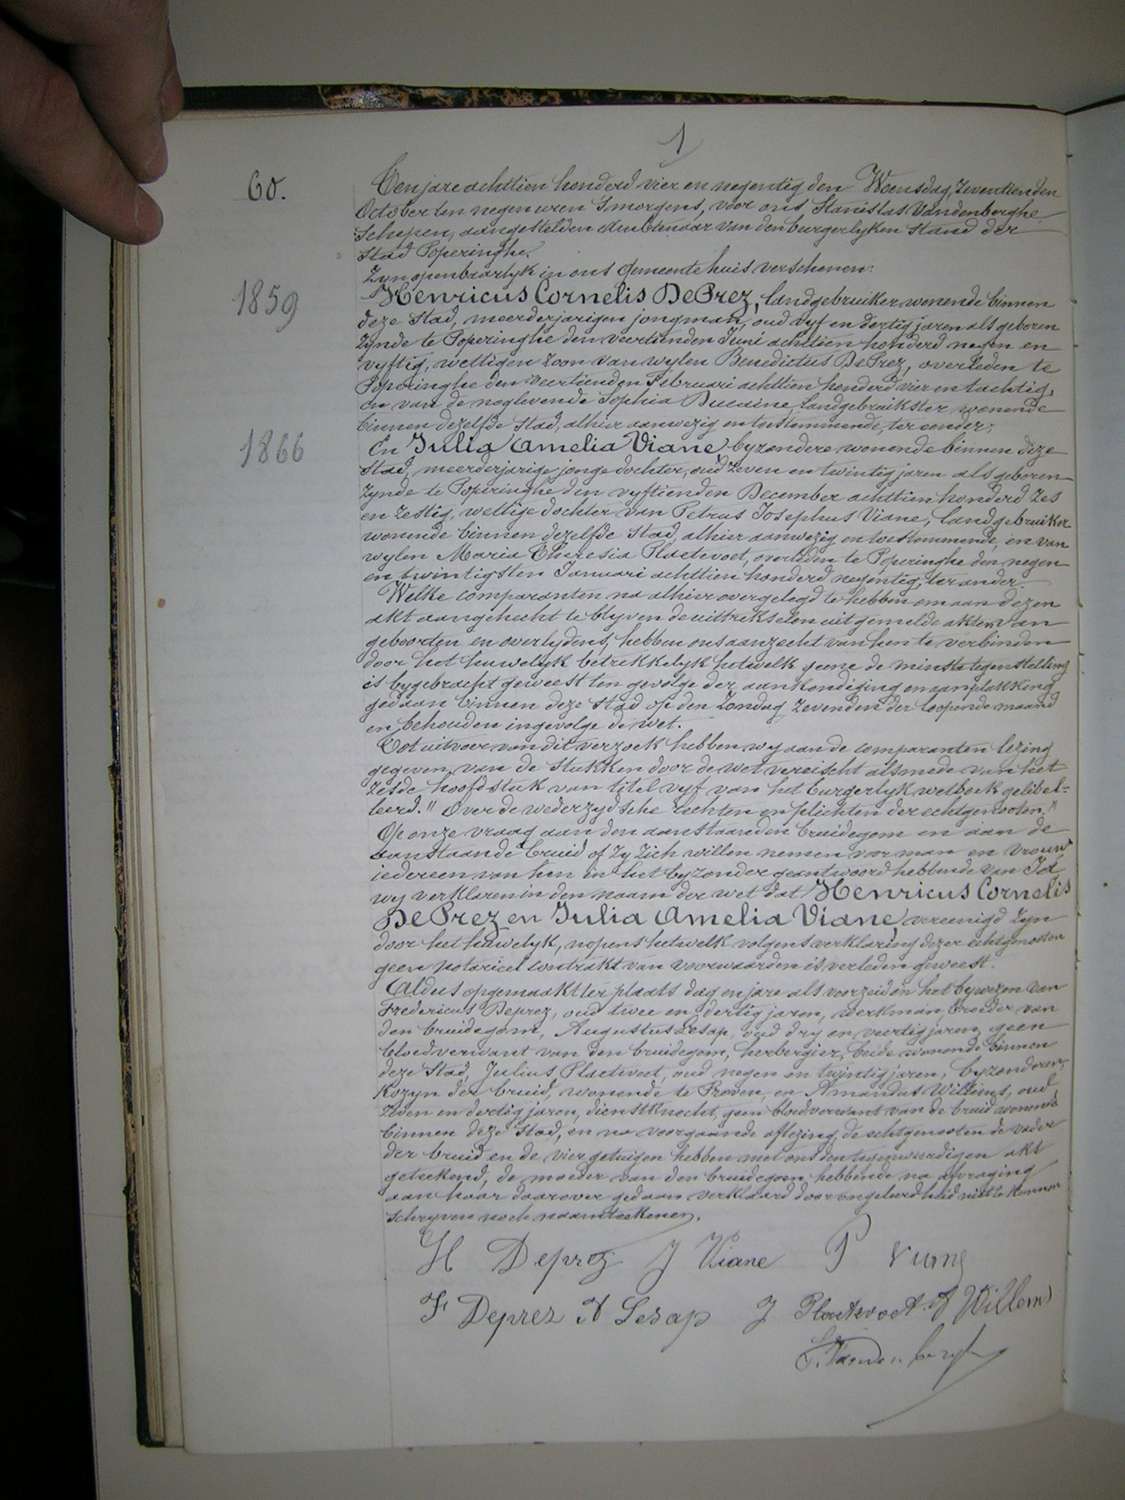 1
60.
Ten jare achttien honderd vier en negentig den Woensdag Zeventienden
October ten negen uren s'morgens, voor ons Stanislas Vandenberghe
Schepen, aangestelden Ambtenaar van den burgerlyken stand der
stad Poperinghe.
Zyn openbaarlyk in ons Gemeentehuis verschenen:
1859
Henricus Cornelis DePrez, landgebruiker wonende binnen
deze stad, meerderjarigen jongman, oud vyf en dertig jaren als geboren
zynde te Poperinghe den veertienden Juni achttien honderd negen en
vyftig, wettigen zoon van wylen Benedictus DePrez, overleden te
Poperinghe den veertienden Februari achttien honderd vier en tachtig,
en van de noglevende Sophia Ducaine, landgebruikster, wonende
binnen dezelfde stad, alhier aanwezig en toestemmende, ter eender;
1866
En Julia Amelia Viane, byzondere wonende binnen deze
stad, meerderjarige jonge dochter, oud zeven en twintig jaren als geboren
zynde te Poperinghe den vyftienden December achttien honderd zes
en zestig, wettige dochter van Petrus Josephus Viane, landgebruiker
wonende binnen dezelfde stad, alhier aanwezig en toestemmende, en van
wylen Maria Theresia Plaetevoet, overleden te Poperinghe den negen
en twintigsten Januari achttien honderd negentig, ter ander.
Welke comparanten na alhier overgelegd te hebben om aan dezen
akt aangehecht te blyven de uittrekselen uit gemelde akten van
geboorten en overlydens, hebben ons aanzocht van hen te verbinden
door het huwelyk betrekkelyk hetwelk geene de minste tegenstelling
is bygebracht geweest ten gevolge der aankondiging en aanplakking
gedaan binnen deze stad op den Zondag zevenden der loopende maand
en behouden ingevolge de wet.
Tot uitvoer van dit verzoek hebben wy aan de comparanten lezing
gegeven van de stukken door de wet vereischt alsmede van het
zesde hoofdstuk van titel vyf van het burgerlyk wetboek gelibel=
leerd. "Over de wederzydsche rechten en plichten der echtgenooten."
Op onze vraag aan den aanstaanden bruidegom en aan de
aanstaande bruid of zy zich willen nemen voor man en vrouw
iedereen van hen in het byzonder geantwoord hebbende van Ja
wy verklaren in den naam der wet dat Henricus Cornelis
DePrez en Julia Amelia Viane, vereenigd zyn
door het huwelyk, nopens hetwelk volgens verklaring dezer echtgenooten
geen notarieel contrakt van voorwaarden is verleden geweest.
Aldus opgemaakt ter plaats dag en jare als voorzeid in het bywezen van
Fredericus Deprez, oud twee en dertig jaren, werkman, broeder van
den bruidegom, Augustus Lesap, oud dry en veertig jaren, geen
bloedverwant van den bruidegom, herbergier, beide wonende binnen
deze stad, Julius Plaetevoet, oud negen en twintig jaren, byzonderen,
kozyn der bruid, wonende te Proven, en Amandus Willems, oud
zeven en dertig jaren, dienstknecht, geen bloedverwant van de bruid wonende
binnen deze stad, en na voorgaande aflezing, de echtgenooten de vader
der bruid en de vier getuigen hebben met ons den tegenwoordigen akt
geteekend, de moeder van den bruidegom hebbende na afvraging
aan haar daarover gedaan verklaard door ongeleerdheid niet te kunnen
schryven noch naamteekenen.
H Deprez J Viane P
F Deprez A Lesap J Plaetevoet A Willems
S. Vandenberghe